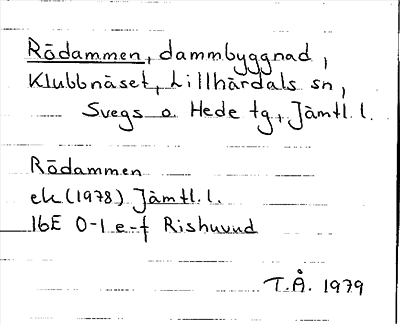 Rödammen, dammbyggnad,
Klubbnäset, Lillhärdals sn,
Svegs o. Hede tg, Jämtl. l.
Rödammen
ek (1978) Jämtl. l.
16E 0-1 e-f Rishuvud
T.Å. 1979